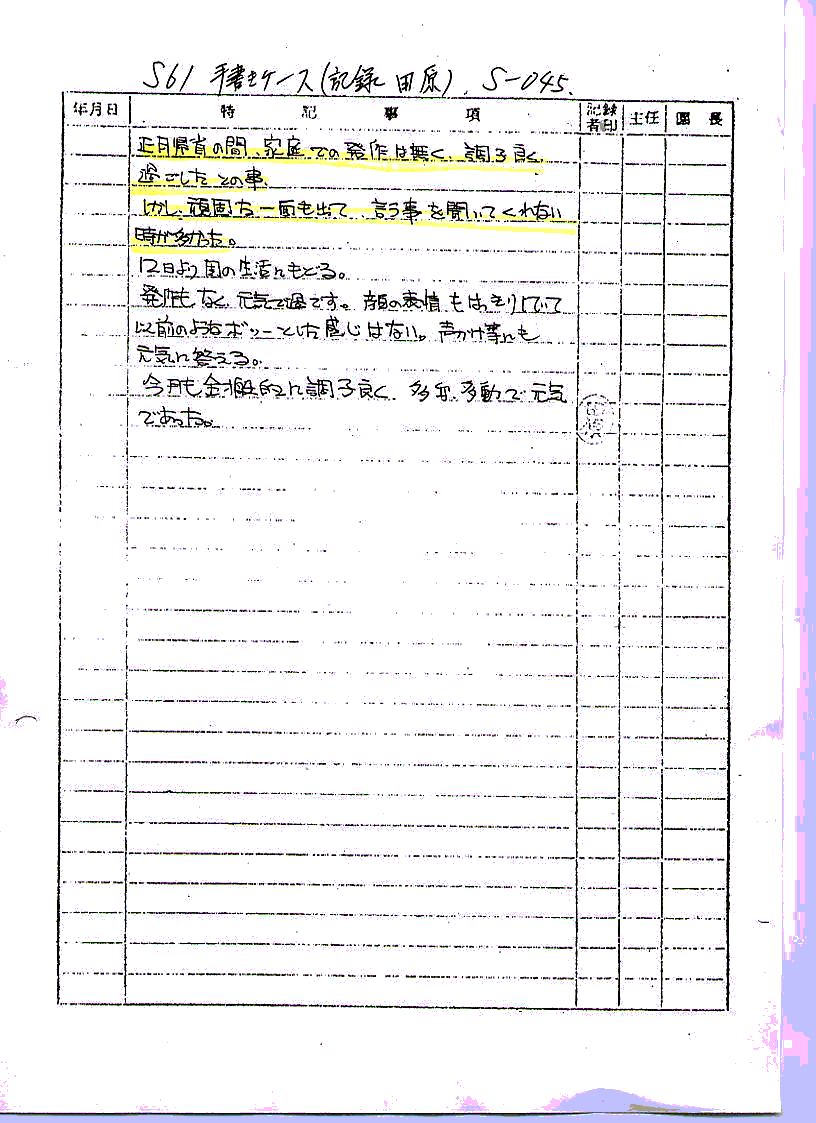 S61 手書きケース(記録 田原). S-045.
年月日 特記事項 記録者印 主任 園長
正月帰省の間、家庭での発作は無く、調子良く
過ごしたとの事、
しかし、頑固な一面も出て、言う事を聞いてくれない
時が多かった。
12日より園の生活にもどる。
発作もなく、元気で過です。顔の表情もはっきりしていて
以前のようなボーっとした感じはない。声かけ等にも
元気に答える。
今月も全般的に調子良く、多弁、多動で元気
であった。